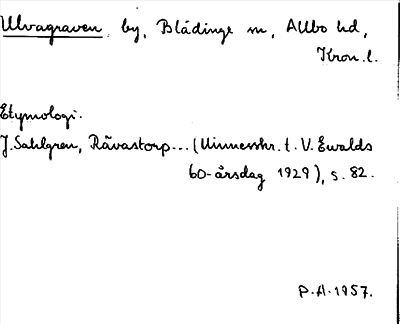 Ulvagraven, by, Blädinge sn, Allbo hd,
Kron. l.
Etymologi.
J. Sahlgren, Rävastorp... (Minnesskr. t. V. Ewalds
60-årsdag 1929), s. 82.
P.A. 1957.